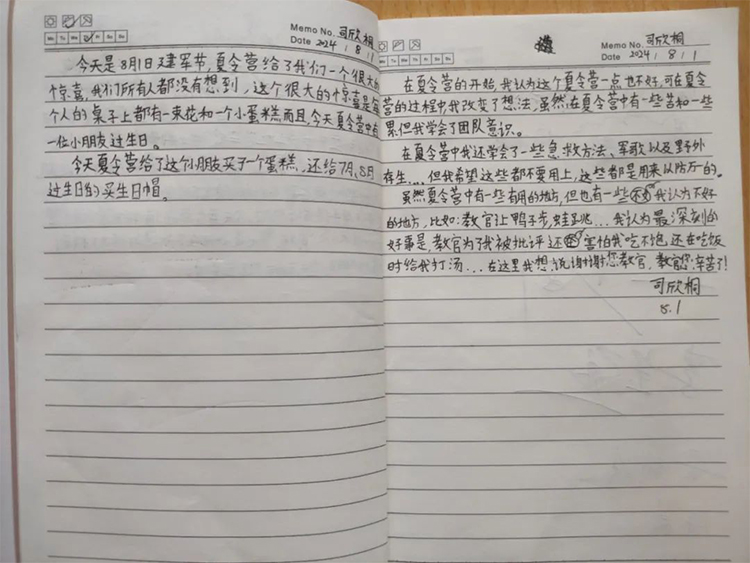 Memo No. 司欣桐
Mo Tu We Th Fr Sa Su
Date 2024 / 8 / 1
今天是8月1日建军节,夏令营给了我们一个很大的
惊喜,我们所有人都没有想到,这个很大的惊喜是每
个人的桌子上都有一束花和一个小蛋糕而且今天夏令营中有
一位小朋友过生日。
今天夏令营给了这个小朋友买了一个蛋糕,还给7月、8月
过生日的买生日帽。
Memo No. 司欣桐
Mo Tu We Th Fr Sa Su
Date 2024 / 8 / 1
在夏令营的开始,我认为这个夏令营一点也不好,可在夏令
营的过程中我改变了想法,虽然在夏令营中有一些苦和一些
累但我学会了团队意识。
在夏令营中我还学会了一些急救方法、军歌以及野外
存生...,但我希望这些都不要用上,这些都是用来以防万一的。
虽然夏令营中有一些有用的地方,但也有一些我认为不好
的地方,比如:教官让鸭子步,蛙跳...我认为最深刻的
好事是,教官为了我被批评还害怕我吃不饱,还在吃饭
时给我打汤...在这里我想说谢谢您教官,教官您辛苦了!
司欣桐
8.1